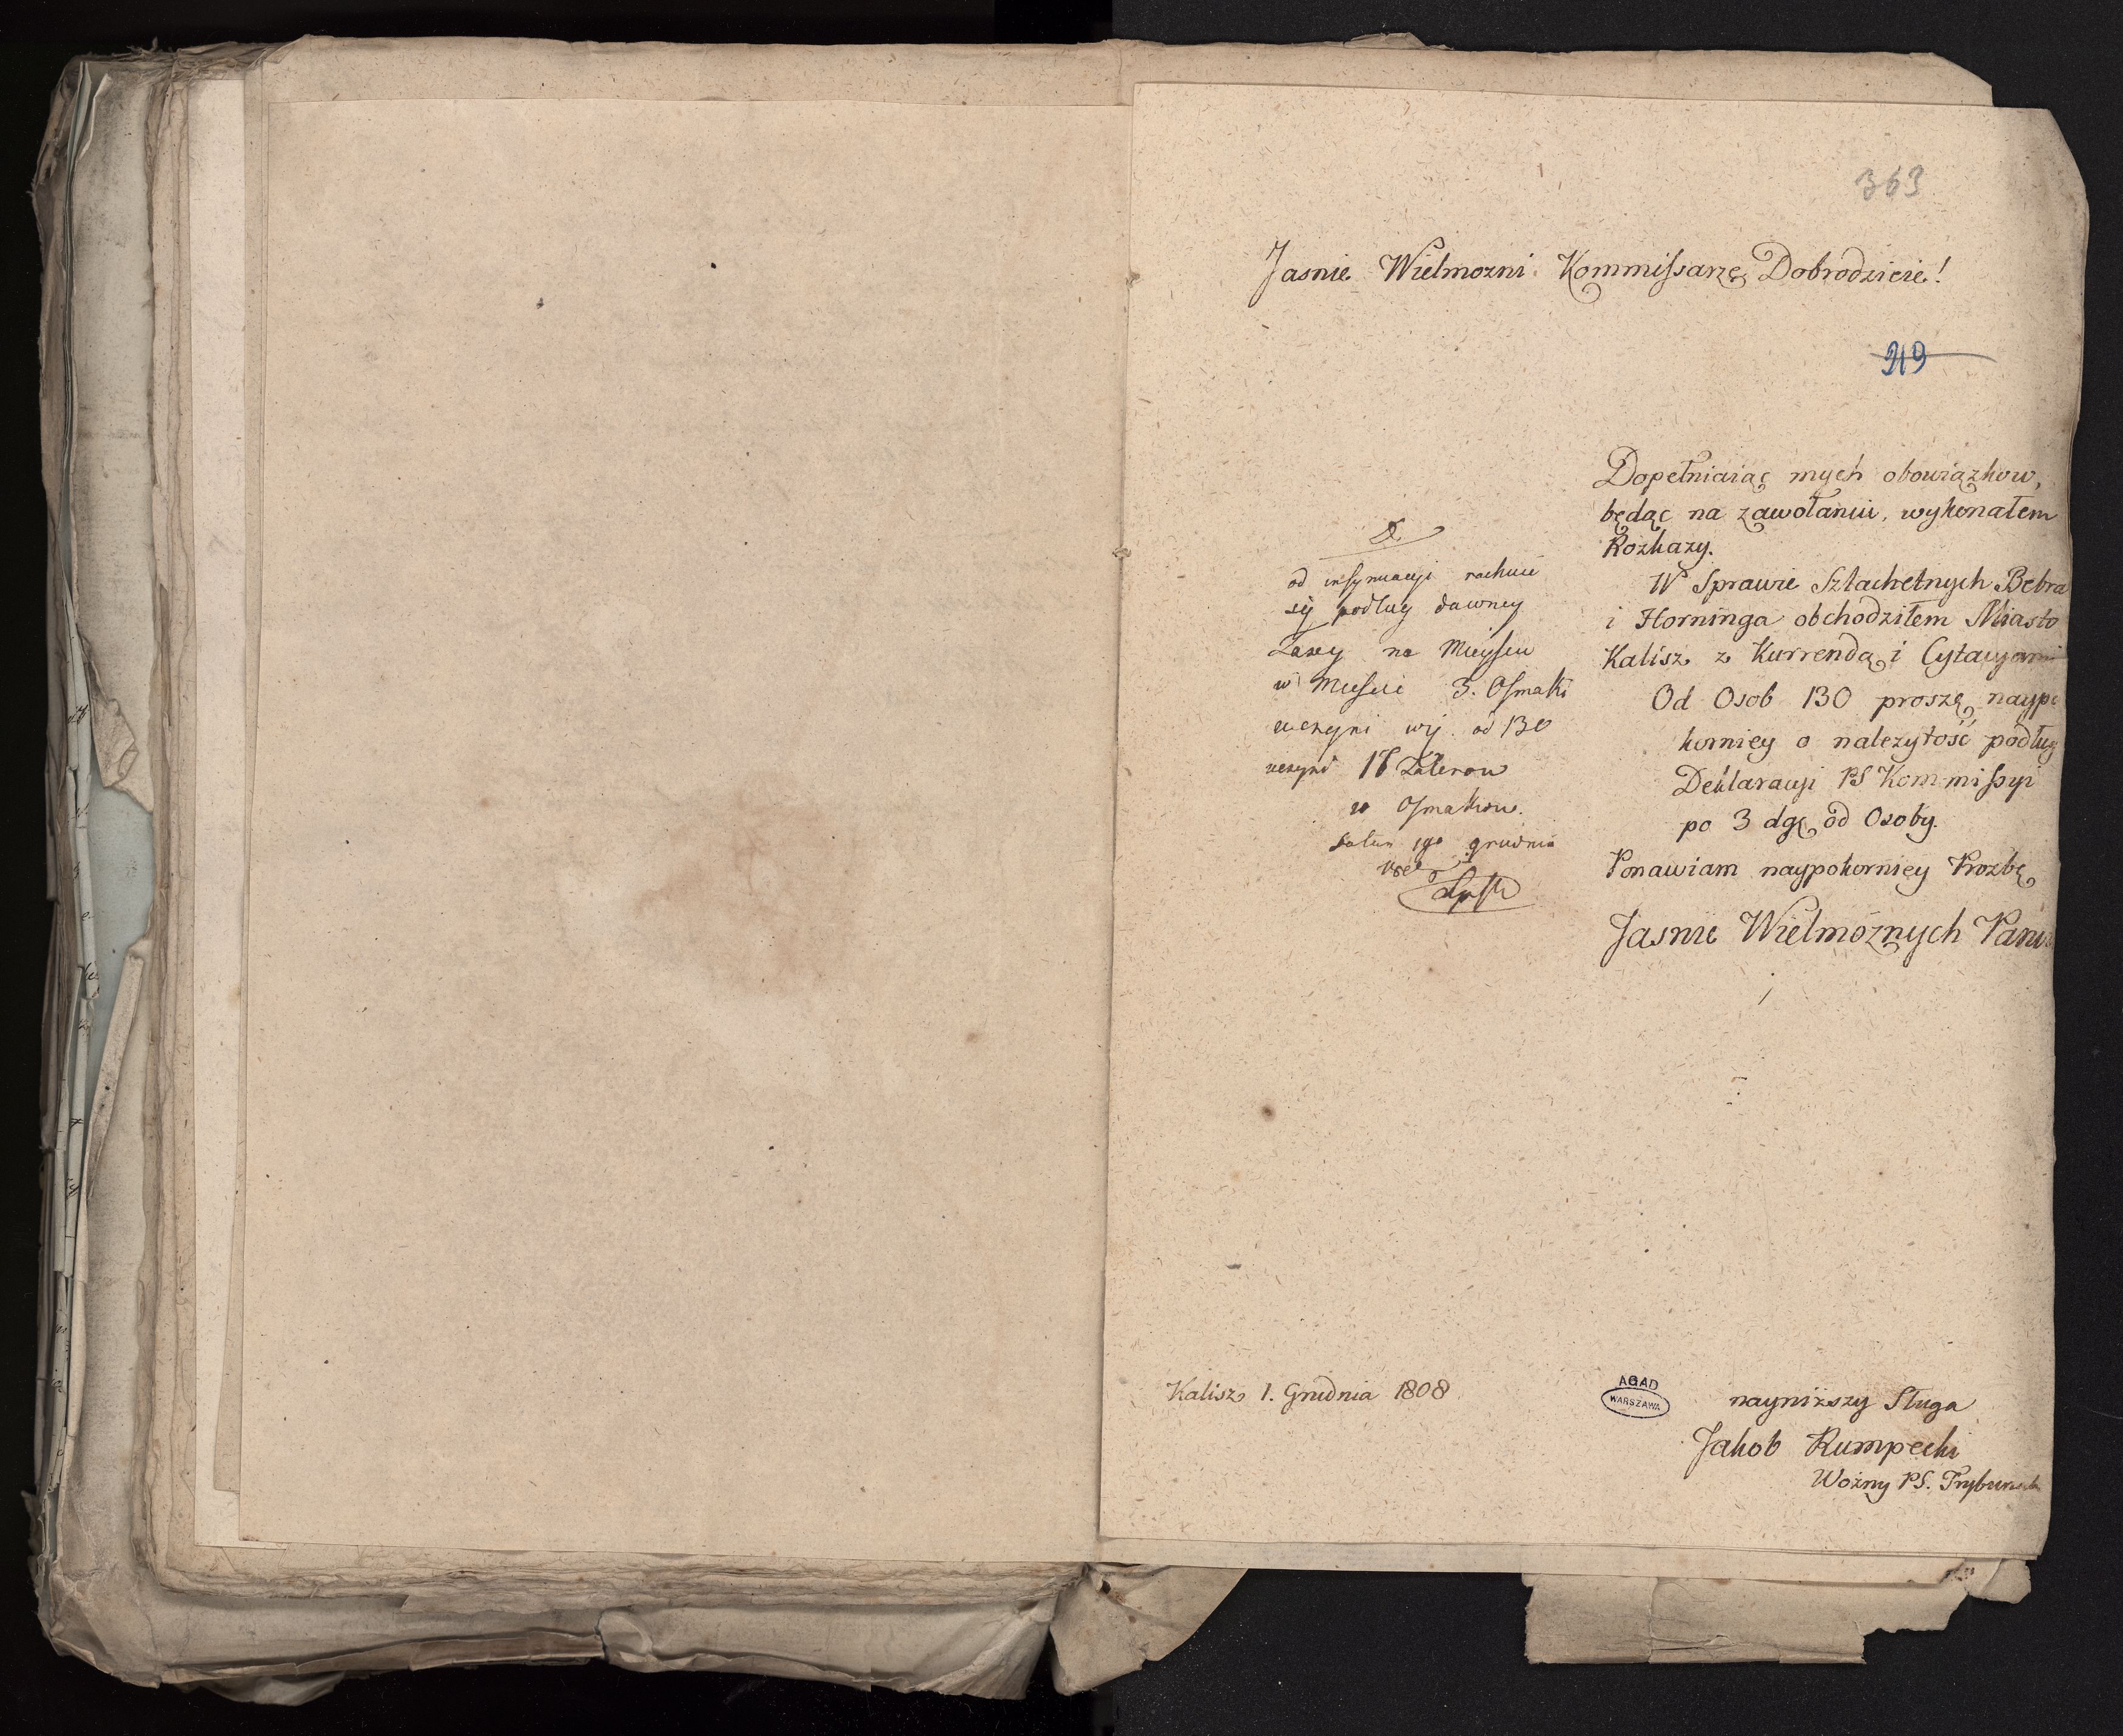 363
Jasnie Wielmozni Kommissarzę Dobrodzieie!
219
Dopełniaiąc mych obowiązkow,
będąc na zawołaniu, wykonałem
Rozkazy.
W Sprawie Szlachetnych Bebra
i Horninga obchodziłem Miasto
Kalisz z Kurrendą i Cytacyami
Od Osob 130 proszę naypo
korniey o nalezytość podług
Deklaracyi PS Kommissyi
po 3 dgę od Osoby.
Ponawiam naypokorniey Prozbę
Jasnie Wielmożnych Panow
od insynuacyi rachuie
się podług dawney
Taxy na Mieyscu
w Miescie 3. Osmaki
uczyni od 130
uczyni Talerow
Osmakow.
grudnia
Kalisz 1. Grudnia 1808
AGAD
WARSZAWA
nayniższy Sługa
Jakob Rumpecki
Woźny PS. Trybunału